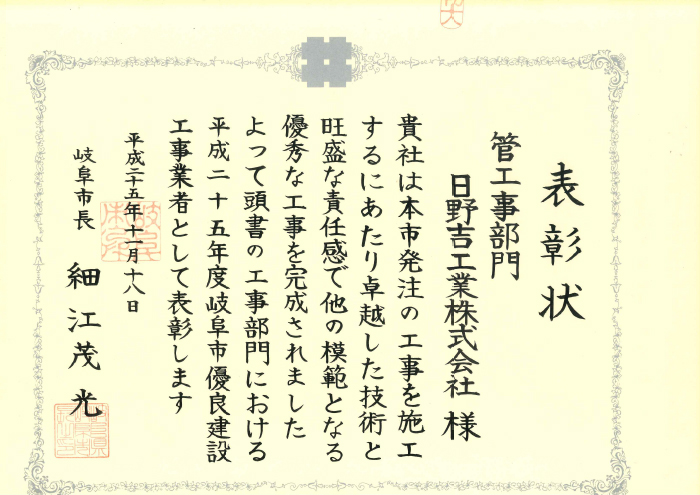 表彰状
管工事部門
日野吉工業株式会社 様
貴社は本市発注の工事を施工
するにあたり卓越した技術と
旺盛な責任感で他の模範となる
優秀な工事を完成されました
よって頭書の工事部門における
平成二十五年度岐阜市優良建設
工事業者として表彰します
平成二十五年十一月十八日
岐阜市長 細江茂光